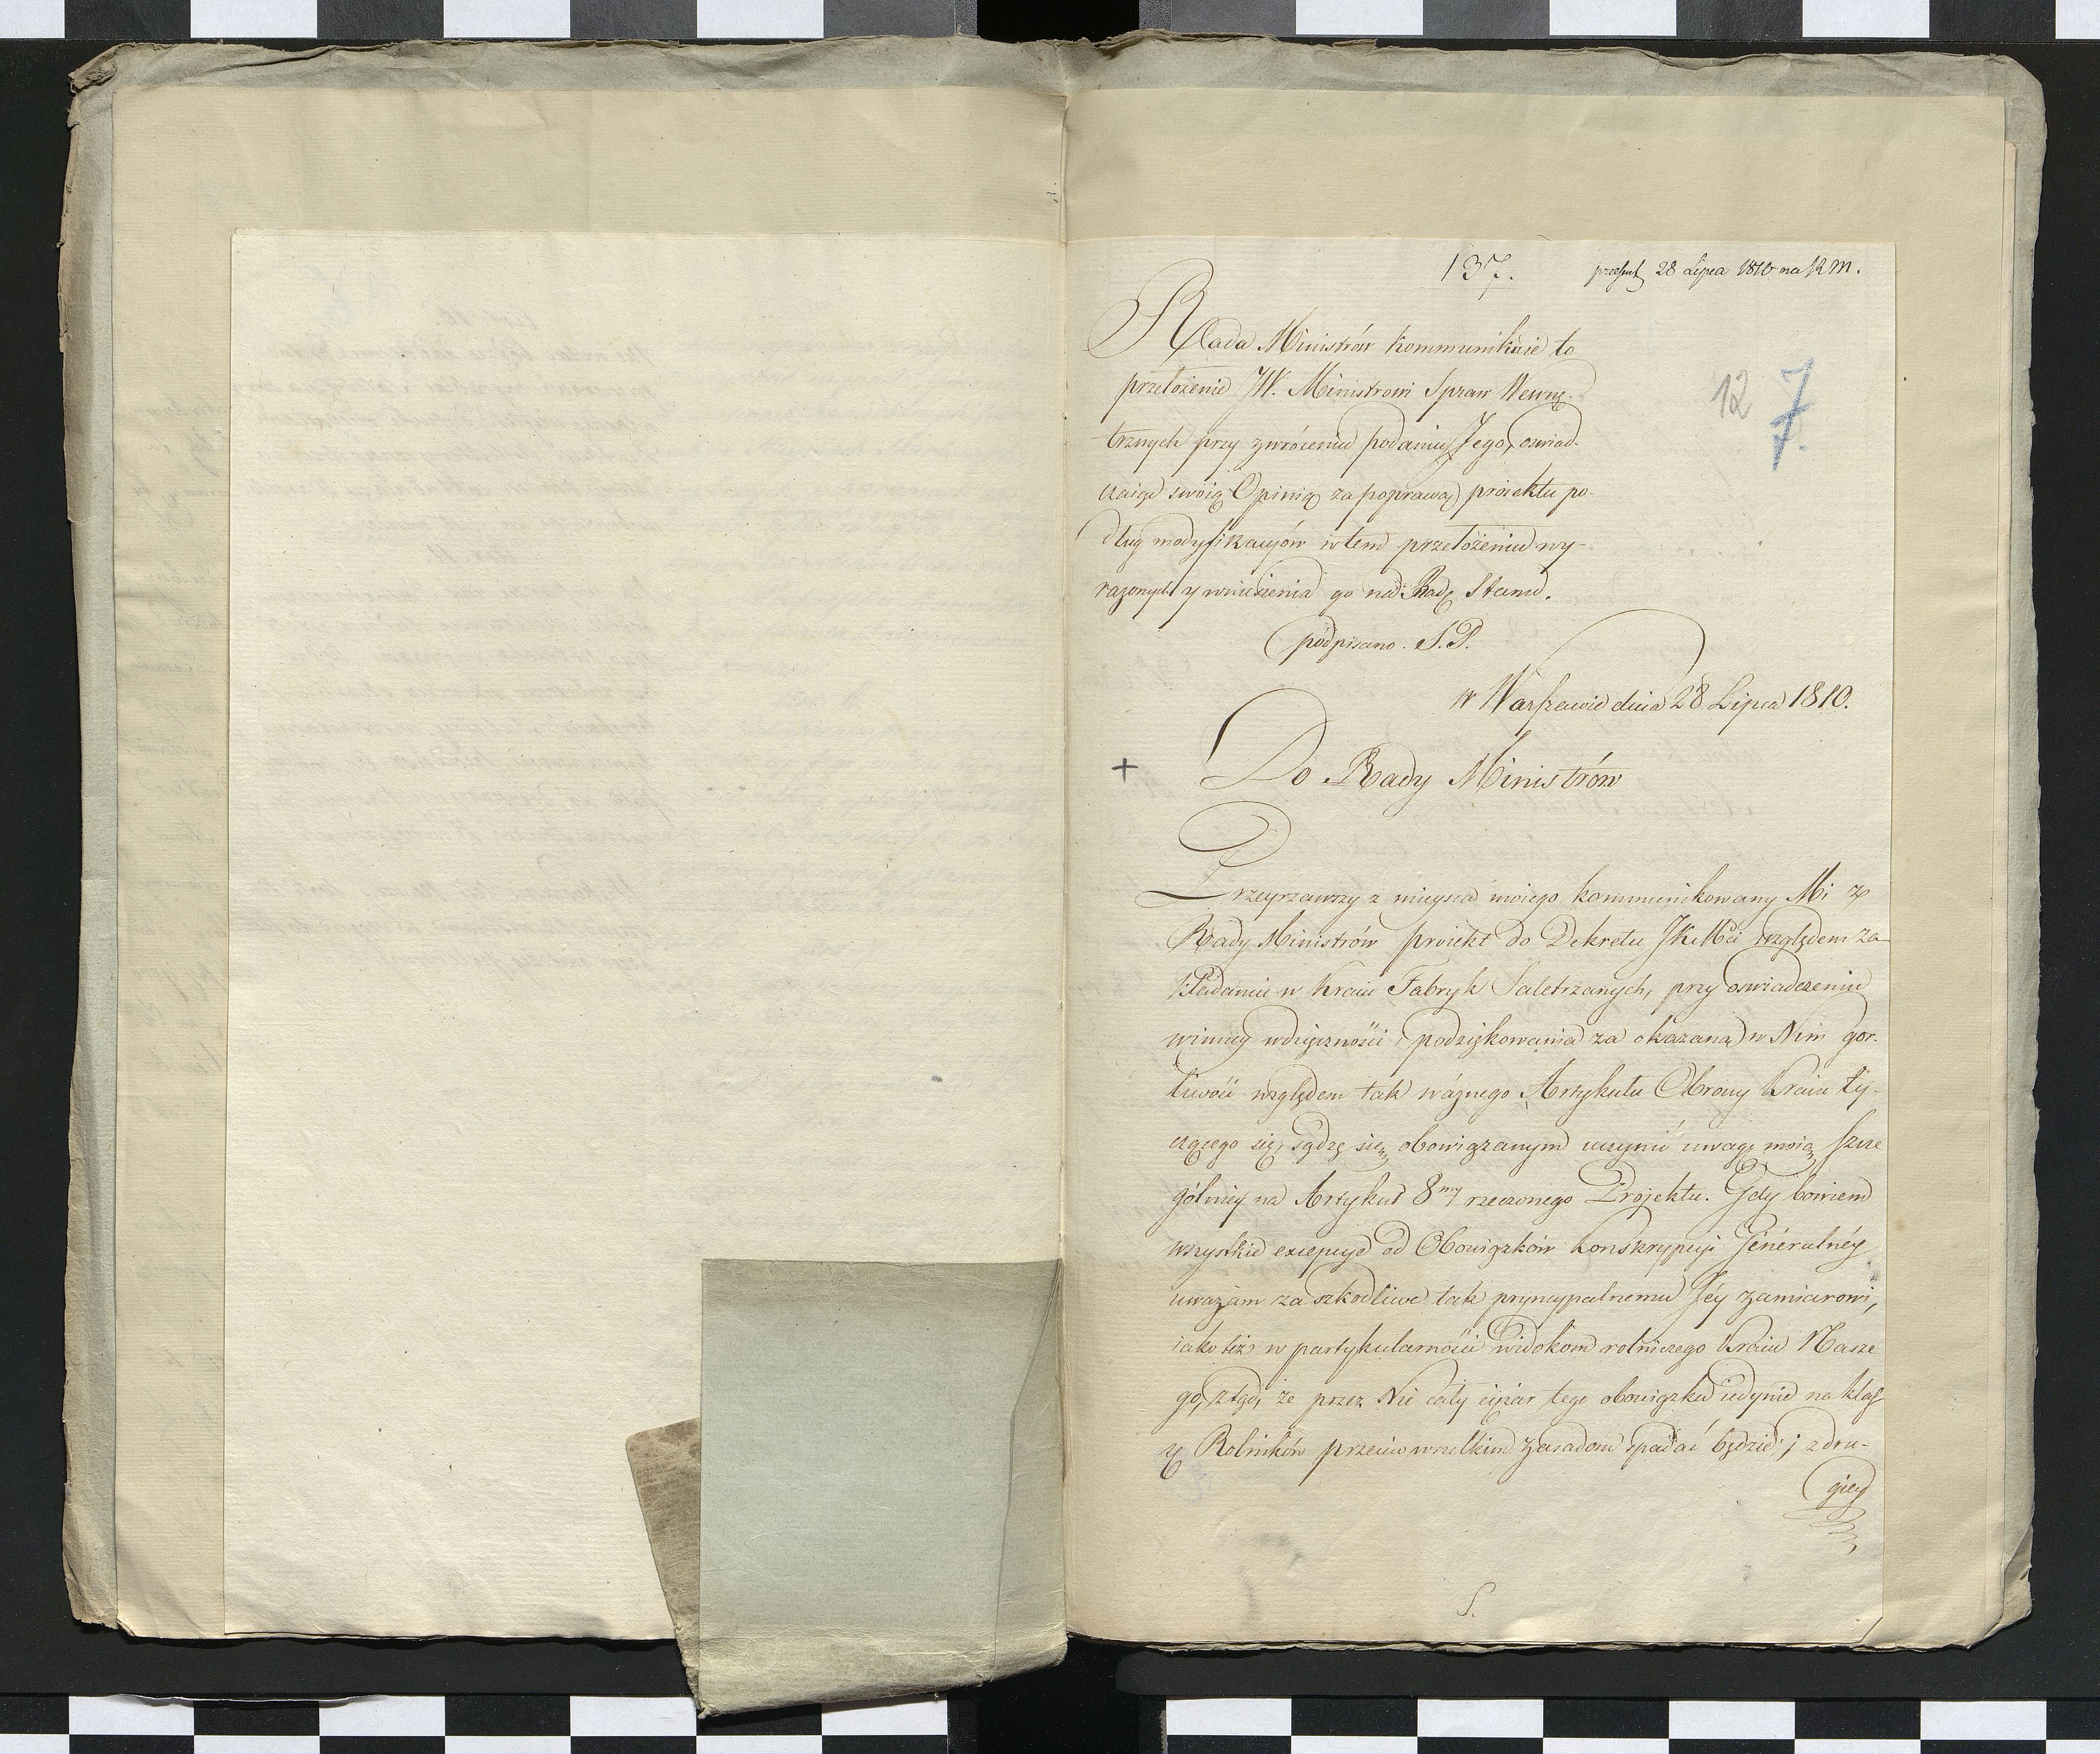 137.
praesent 28 Lipca 1810 na R M.
Rada Ministrów kommunikuie to
przełożenie JW. Ministrowi Spraw Wewnę-
trznych przy zwróceniu podaniu Jego, oswiad-
czaiąc swoią Opinią za poprawą proiektu po-
dług modyfikacyów w tem przełożeniu wy-
rażonych y wniesienia go na Radę Stanu.
podpisano. S. P.
12
7
7.
w Warszawie dnia 28 Lipca 1810.
+
Do Rady Ministrów
Przeyrzawszy z mieysca moiego kommunikowany Mi z
Rady Ministrów proiekt do Dekretu JKMci względem za-
kładaniu w kraiu Fabryk Saletrzanych, przy oswiadczeniu
winney wdzięczności i podziękowania za okazaną w Nim gor-
liwość względem tak ważnego Artykułu Obrony kraiu ty-
czącego się, sądzę się obowiązanym uczynić uwagę moią szcze
gólniey na Artykuł 8my rzeczonego Projektu. Gdy bowiem
wszystkie excepcye od Obowiązków konskrypcyi Generalnéy
uważam za szkodliwe tak pryncypalnemu Jéy zamiarowi,
iako też w partykularności widokom rolniczego kraiu Nasze
go, ztąd, że przez Nie cały ciężar tego obowiązku iedynie na klas
sę Rolników przeciw wszelkim zasadom spadać będzie; z dru-
giey
S.